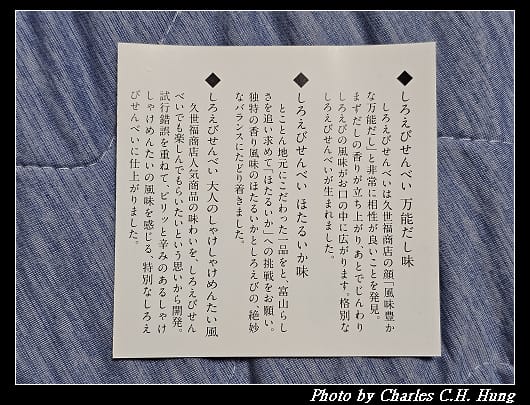 ◆しろえびせんべい 万能だし味
しろえびせんべいは久世福商店の顔「風味豊か
な万能だし」と非常に相性が良いことを発見。
まずだしの香りが立ち上がり、あとでじんわり
しろえびの風味がお口の中に広がります。格別な
しろえびせんべいが生まれました。
◆しろえびせんべい ほたるいか味
とことん地元にこだわった一品をと、富山らし
さを追い求めて「ほたるいか」への挑戦をお願い。
独特の香り風味のほたるいかとしろえびの、絶妙
なバランスにたどり着きました。
◆しろえびせんべい 大人のしゃけしゃけめんたい風
久世福商店人気商品の味わいを、しろえびせん
べいでも楽しんでもらいたいという思いから開発。
試行錯誤を重ねて、ピリッと辛みのあるしゃけ
しゃけめんたいの風味を感じる、特別なしろえ
びせんべいに仕上がりました。
Photo by Charles C.H. Hung